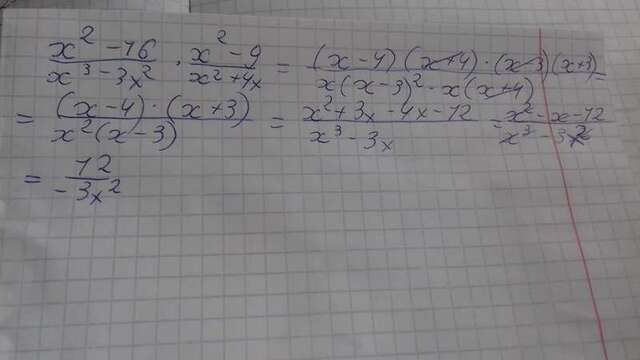 x² - 16 / x³ - 3x² · x² - 9 / x² + 4x = (x - 4)(x + 4) · (x - 3)(x + 3) / x(x - 3)² · x(x + 4) =
= (x - 4) · (x + 3) / x²(x - 3) = x² + 3x - 4x - 12 / x³ - 3x = x² - x - 12 / x³ - 3x²
= 12 / - 3x²